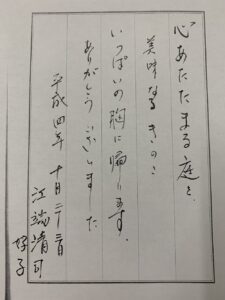 心あたたまる庭と、
美味なるきのこ
いっぱいの胸に帰ります。
ありがとうございました
平成四年 十月二十三日
江端清司
好子